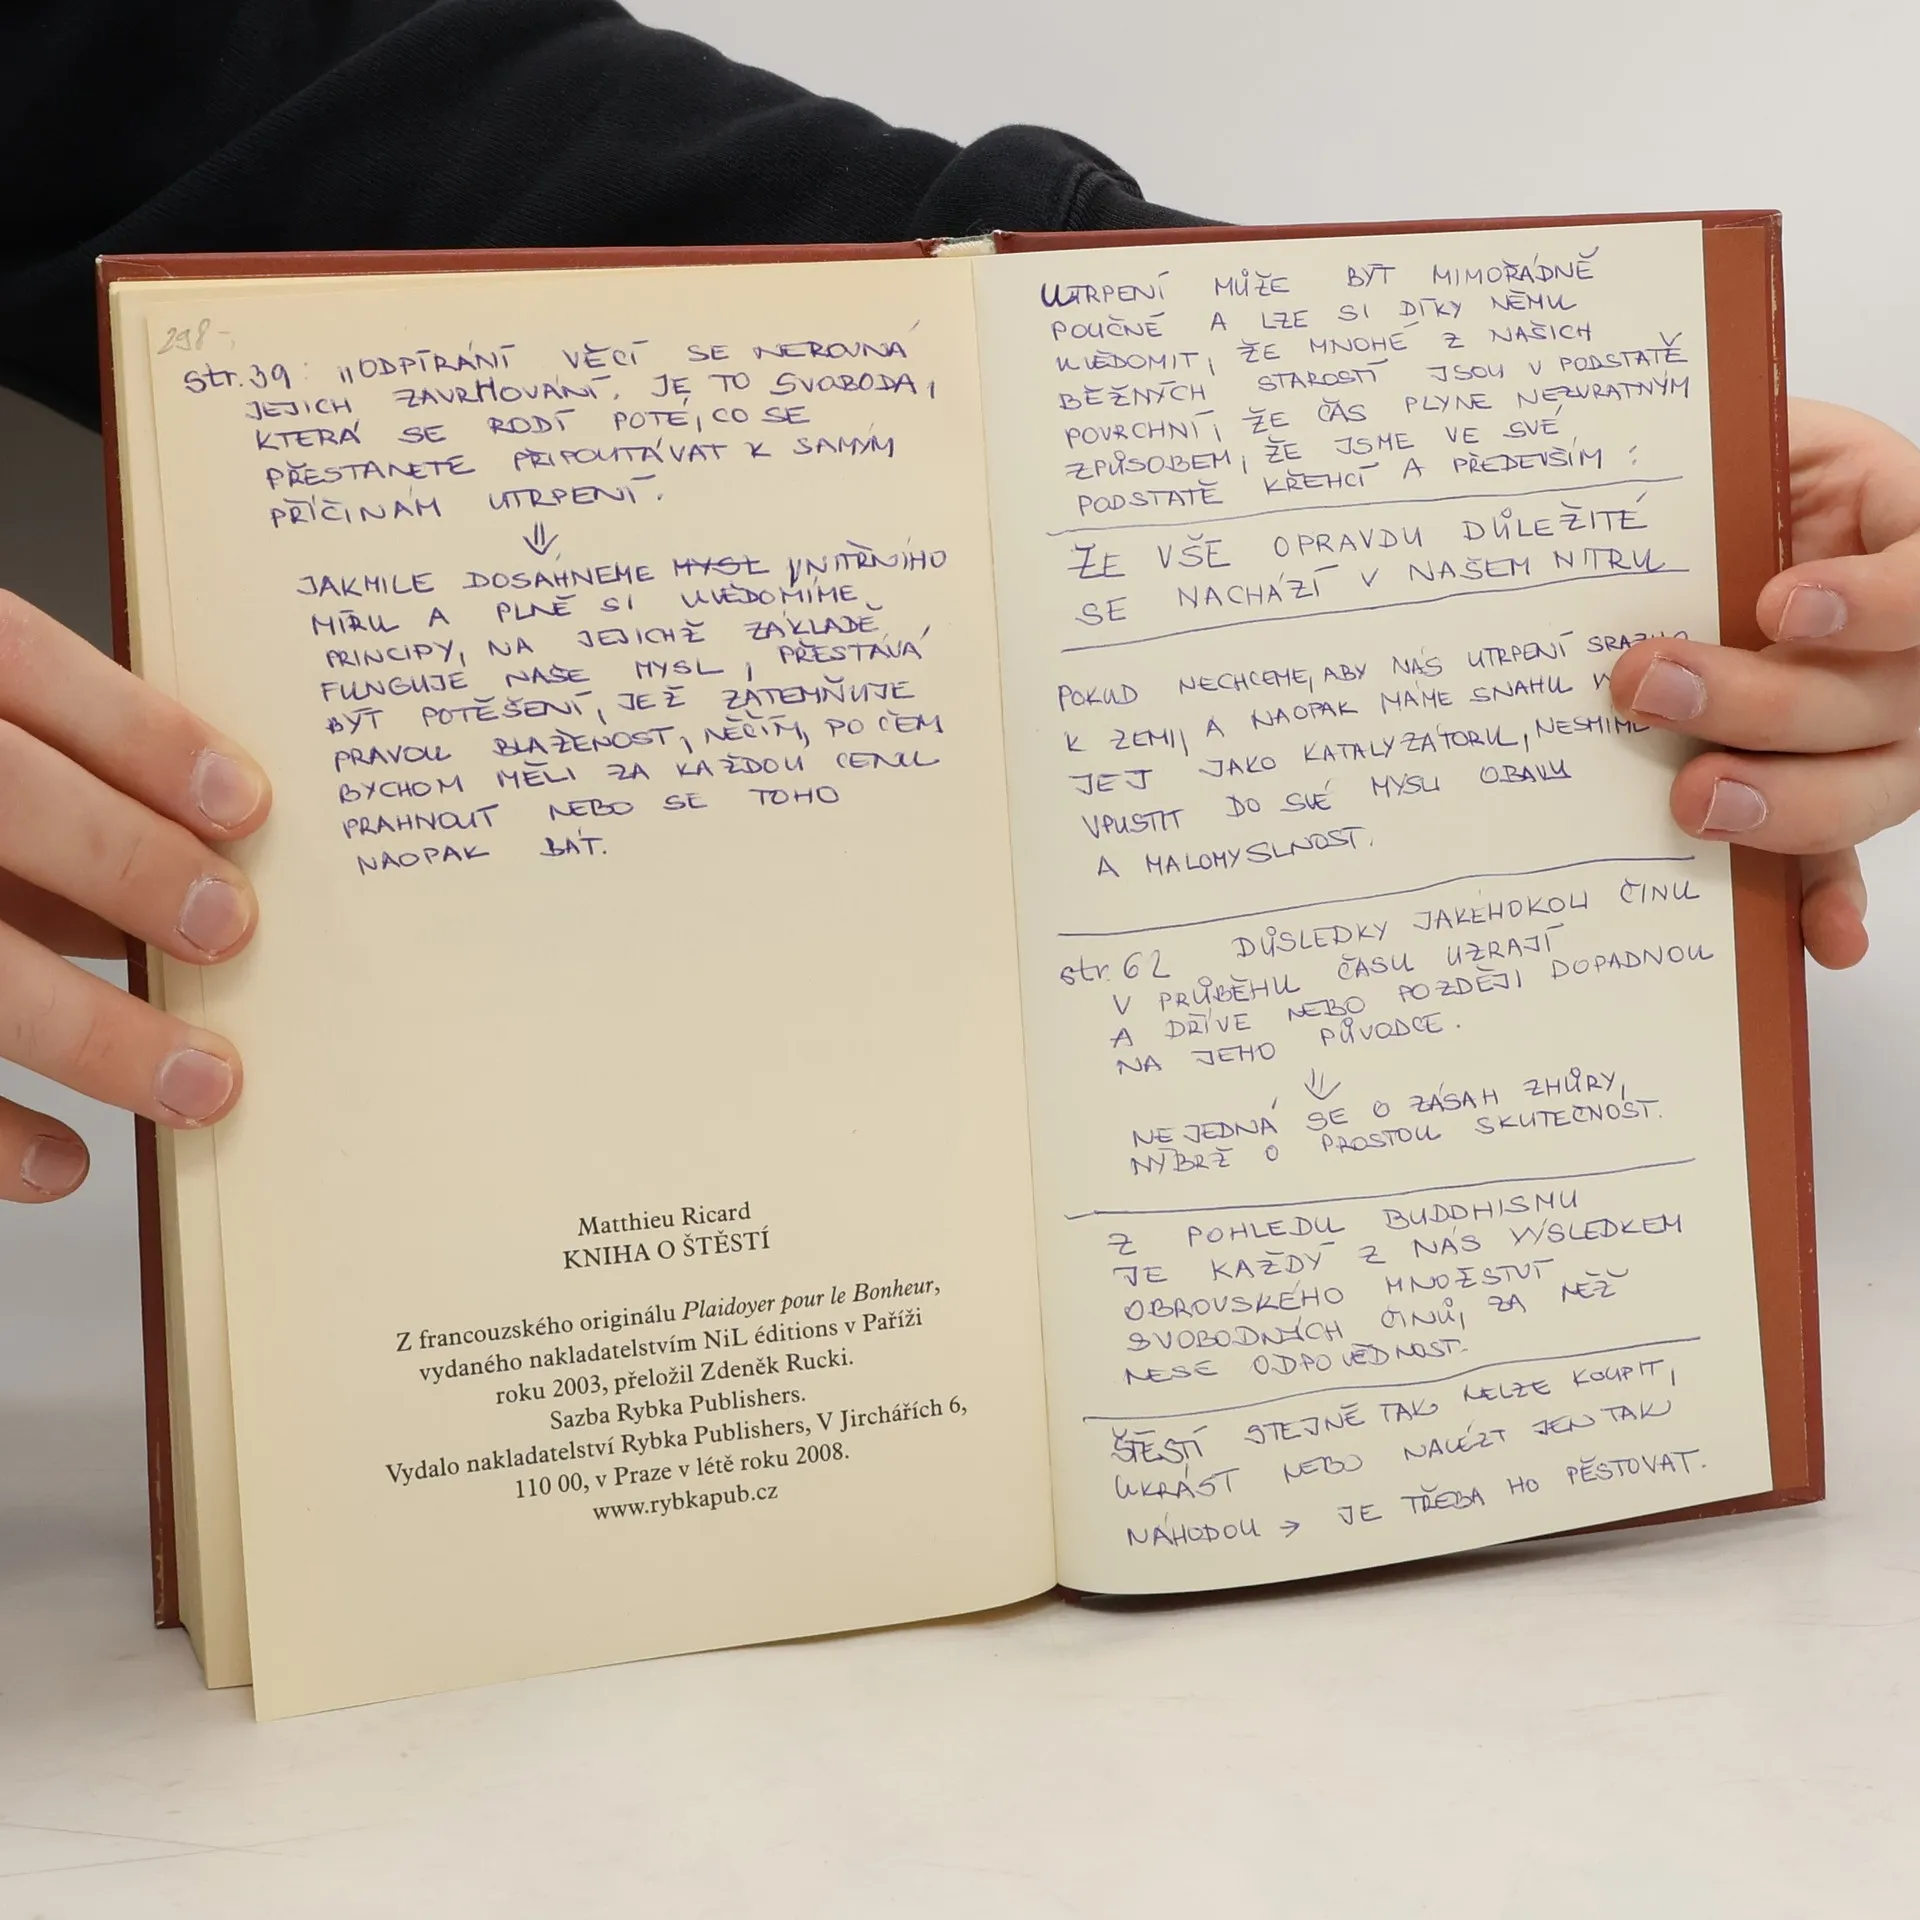 298-,
str. 39: „ODPÍRÁNÍ VĚCÍ SE NEROVNÁ
JEJICH ZAVRHOVÁNÍ. JE TO SVOBODA,
KTERÁ SE RODÍ POTÉ, CO SE
PŘESTANETE PŘIPOUTÁVAT K SAMÝM
PŘÍČINÁM UTRPENÍ.
⇓
JAKMILE DOSÁHNEME MYSL VNITŘNÍHO
MÍRU A PLNĚ SI UVĚDOMÍME
PRINCIPY, NA JEJICHŽ ZÁKLADĚ
FUNGUJE NAŠE MYSL, PŘESTÁVÁ
BÝT POTĚŠENÍ, JEŽ ZATEMŇUJE
PRAVOU BLAŽENOST, NĚČÍM, PO ČEM
BYCHOM MĚLI ZA KAŽDOU CENU
PRAHNOUT NEBO SE TOHO
NAOPAK BÁT.
Matthieu Ricard
KNIHA O ŠTĚSTÍ
Z francouzského originálu Plaidoyer pour le Bonheur,
vydaného nakladatelstvím NiL éditions v Paříži
roku 2003, přeložil Zdeněk Rucki.
Sazba Rybka Publishers.
Vydalo nakladatelství Rybka Publishers, V Jirchářích 6,
110 00, v Praze v létě roku 2008.
www.rybkapub.cz
UTRPENÍ MŮŽE BÝT MIMOŘÁDNĚ
POUČNÉ A LZE SI DÍKY NĚMU
UVĚDOMIT, ŽE MNOHÉ Z NAŠICH
BĚŽNÝCH STAROSTÍ JSOU V PODSTATĚ
POVRCHNÍ, ŽE ČAS PLYNE NEZVRATNÝM
ZPŮSOBEM, ŽE JSME VE SVÉ
PODSTATĚ KŘEHCÍ A PŘEDEVŠÍM :
ŽE VŠE OPRAVDU DŮLEŽITÉ
SE NACHÁZÍ V NAŠEM NITRU
POKUD NECHCEME, ABY NÁS UTRPENÍ
K ZEMI, A NAOPAK MÁME SNAHU
JEJ JAKO KATALYZÁTORU, NESMÍME
VPUSTIT DO SVÉ MYSLI OBAVU
A MALOMYSLNOST.
str. 62 DŮSLEDKY JAKÉHOKOLI ČINU
V PRŮBĚHU ČASU UZRAJÍ
A DŘÍVE NEBO POZDĚJI DOPADNOU
NA JEHO PŮVODCE.
⇓
NEJEDNÁ SE O ZÁSAH ZHŮRY,
NÝBRŽ O PROSTOU SKUTEČNOST.
Z POHLEDU BUDDHISMU
JE KAŽDÝ Z NÁS VÝSLEDKEM
OBROVSKÉHO MNOŽSTVÍ
SVOBODNÝCH ČINŮ, ZA NĚŽ
NESE ODPOVĚDNOST.
ŠTĚSTÍ STEJNĚ TAK NELZE KOUPIT,
UKRÁST NEBO NALÉZT JEN TAK
NÁHODOU → JE TŘEBA HO PĚSTOVAT.